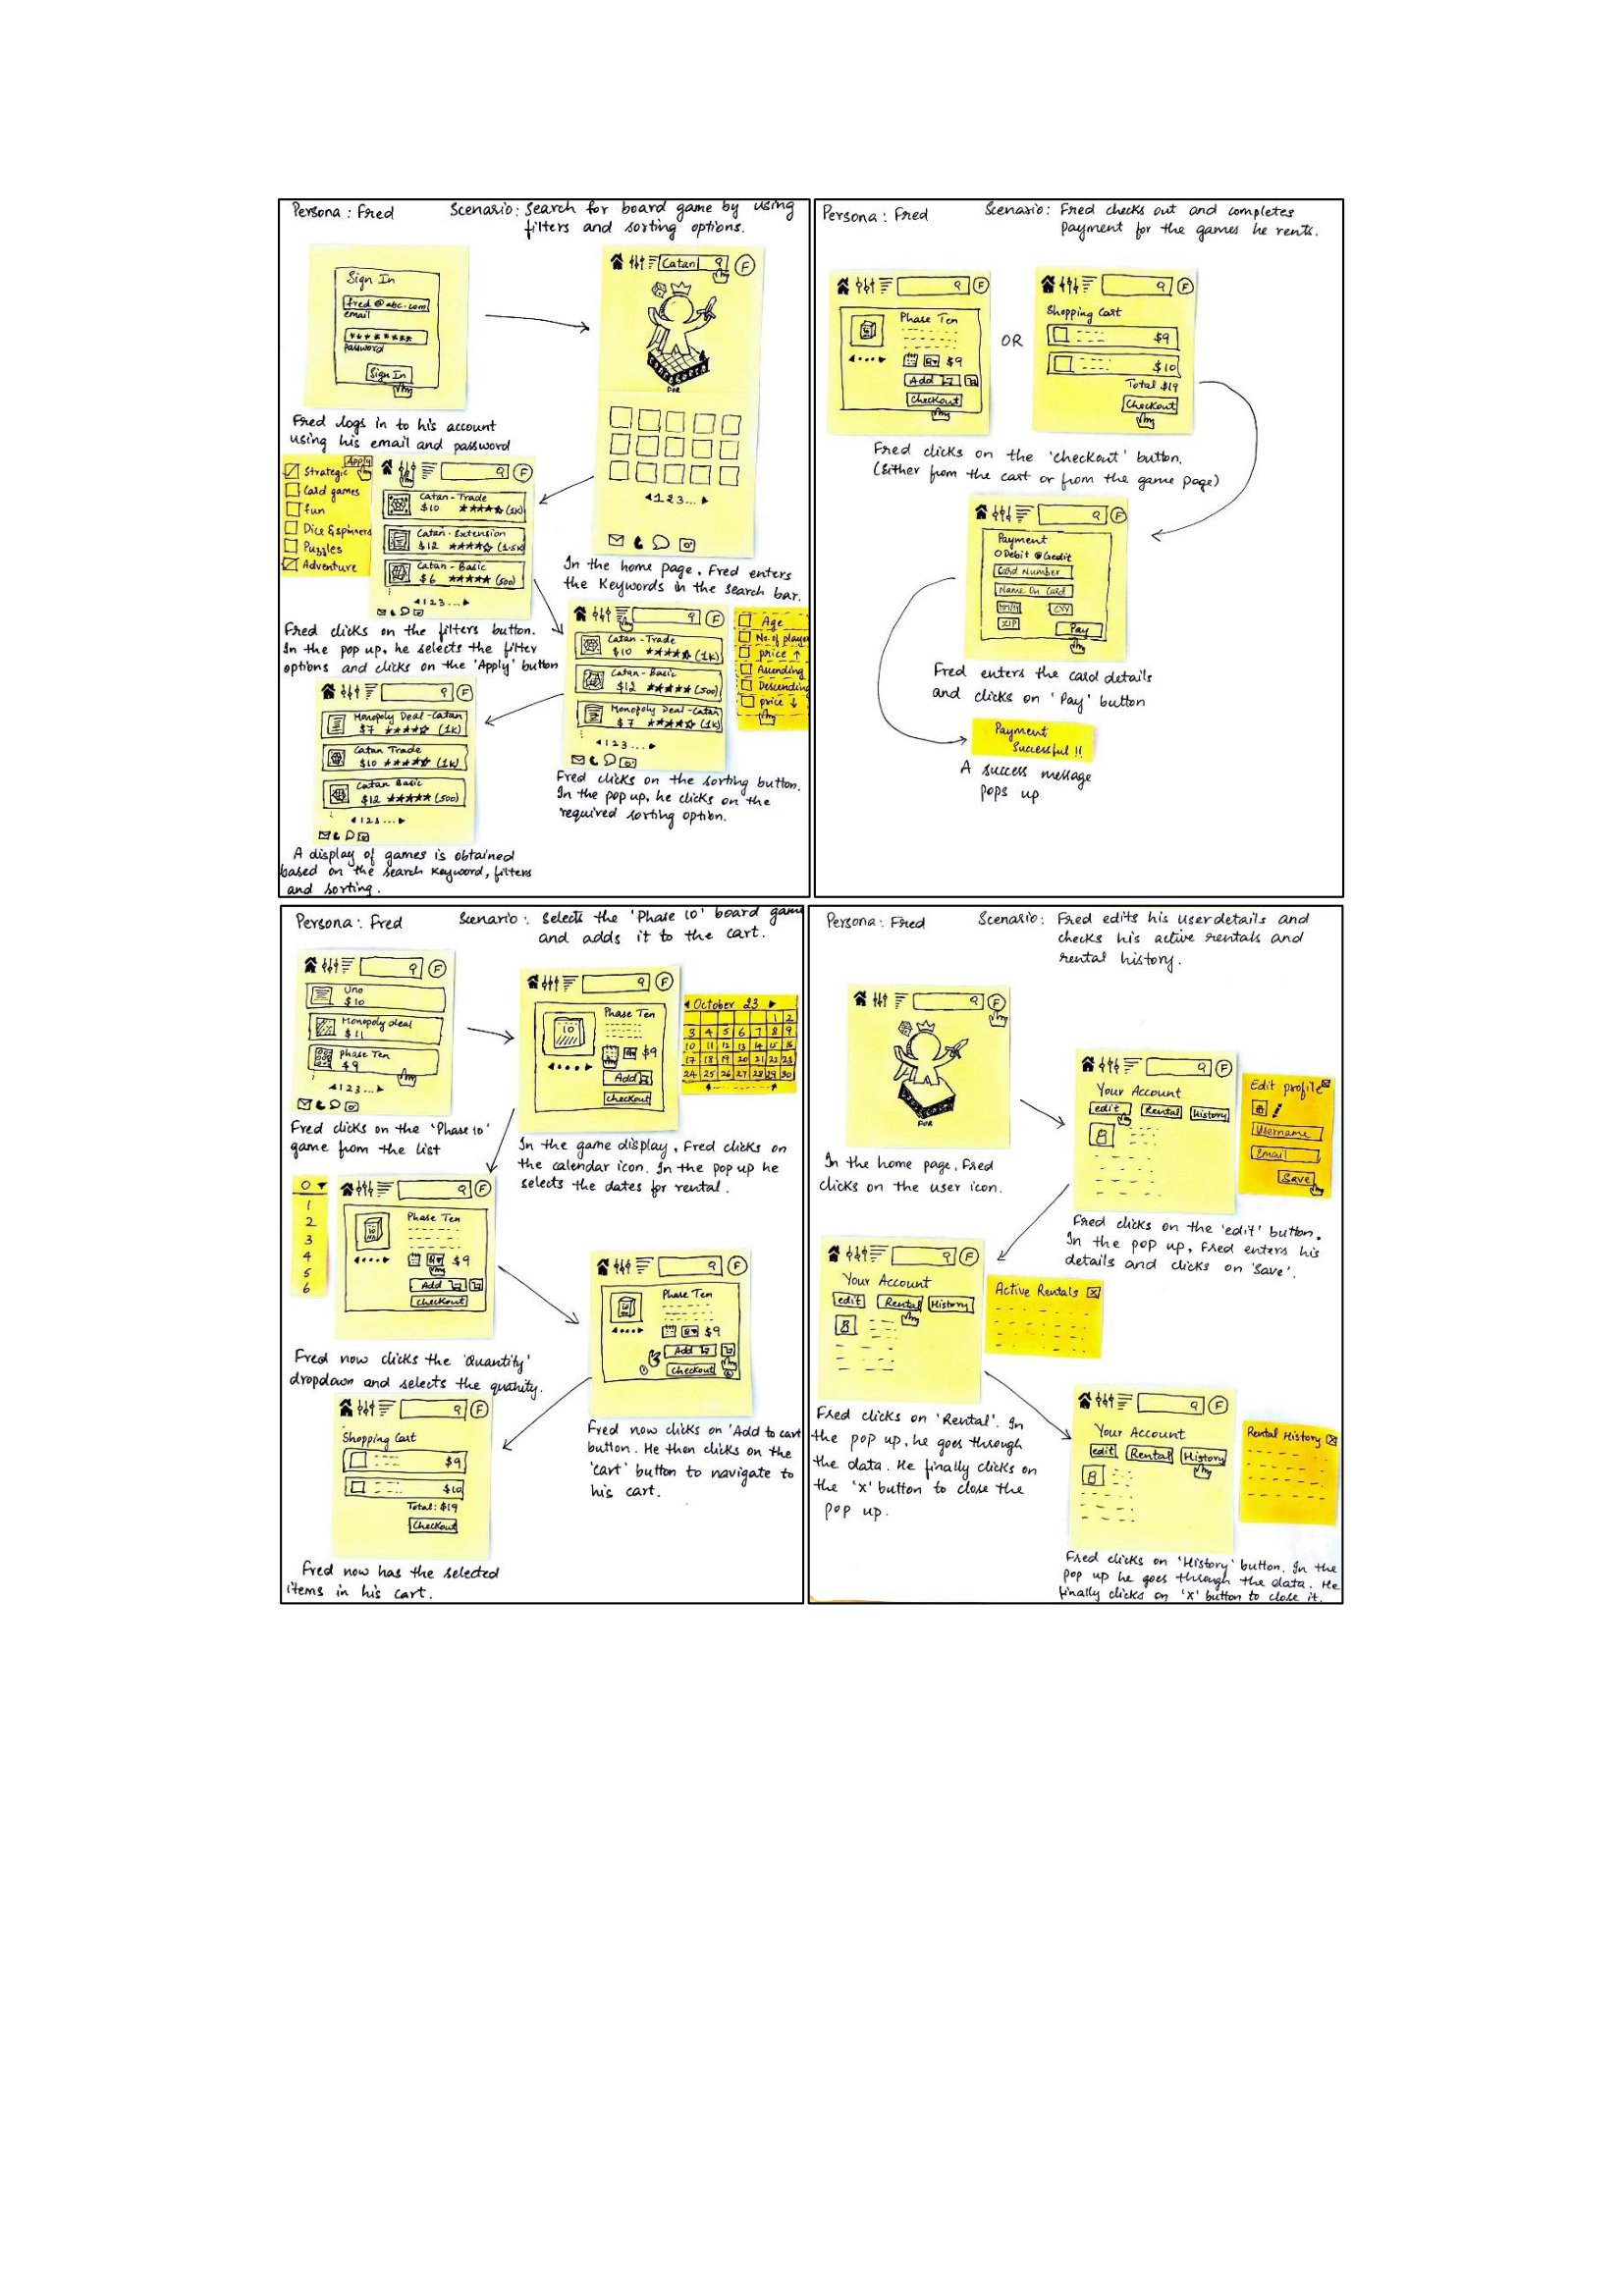 Persona : Fred
Scenario: Search for board game by using
filters and sorting options.
Sign In
fred@abc.com
email
********
Password
Sign In
Fred logs in to his account
using his email and password
Catan
F
FOR
1 2 3 ...
In the home page, Fred enters
the Keywords in the search bar.
Apply
Strategic
Card games
fun
Dice & spinners
Puzzles
Adventure
F
Catan-Trade
$10 ★★★★☆ (1K)
Catan-Extension
$12 ★★★★☆ (1.5K)
Catan-Basic
$6 ★★★★★ (500)
1 2 3 ...
Fred clicks on the filters button.
In the pop up, he selects the filter
options and clicks on the 'Apply' button
F
Catan-Trade
$10 ★★★★☆ (1K)
Catan-Basic
$12 ★★★★★ (500)
Monopoly Deal-Catan
$7 ★★★★☆ (1K)
1 2 3 ...
Age
No. of player
price ↑
Ascending
Descending
price ↓
Fred clicks on the sorting button.
In the pop up, he clicks on the
required sorting option.
F
Monopoly Deal-Catan
$7 ★★★★☆ (1K)
Catan Trade
$10 ★★★★☆ (1K)
Catan Basic
$12 ★★★★★ (500)
1 2 3 ...
A display of games is obtained
based on the search keyword, filters
and sorting.
Persona : Fred
Scenario: Fred checks out and completes
payment for the games he rents.
F
Phase Ten
$9
Add
Checkout
OR
F
Shopping Cart
$9
$10
Total $19
Checkout
Fred clicks on the 'checkout' button.
(Either from the cart or from the game page)
F
Payment
Debit Credit
Card Number
Name On Card
CVV
ZIP
Pay
Fred enters the card details
and clicks on 'Pay' button
Payment
Successful !!
A success message
pops up
Persona : Fred
Scenario : Selects the 'Phase 10' board game
and adds it to the cart.
F
Uno
$10
Monopoly deal
$11
Phase Ten
$9
1 2 3 ...
Fred clicks on the 'Phase 10'
game from the list
F
Phase Ten
10
$9
Add
Checkout
October 23
1 2
3 4 5 6 7 8 9
10 11 12 13 14 15 16
17 18 19 20 21 22 23
24 25 26 27 28 29 30
In the game display, Fred clicks on
the calendar icon. In the pop up he
selects the dates for rental.
0
1
2
3
4
5
6
F
Phase Ten
10
$9
Add
Checkout
Fred now clicks the 'Quantity'
dropdown and selects the quantity.
F
Phase Ten
$9
Add
Checkout
Fred now clicks on 'Add to cart
button. He then clicks on the
'cart' button to navigate to
his cart.
F
Shopping Cart
$9
$10
Total: $19
Checkout
Fred now has the selected
items in his cart.
Persona : Fred
Scenario: Fred edits his user details and
checks his active rentals and
rental history.
F
FOR
In the home page, Fred
clicks on the user icon.
F
Your Account
edit Rental History
Edit profile
Username
Email
Save
Fred clicks on the 'edit' button.
In the pop up, Fred enters his
details and clicks on 'Save'.
F
Your Account
edit Rental History
Active Rentals X
Fred clicks on 'Rental'. In
the pop up, he goes through
the data. He finally clicks on
the 'x' button to close the
pop up.
F
Your Account
edit Rental History
Rental History X
Fred clicks on 'History' button. In the
pop up he goes through the data. He
finally clicks on 'x' button to close it.